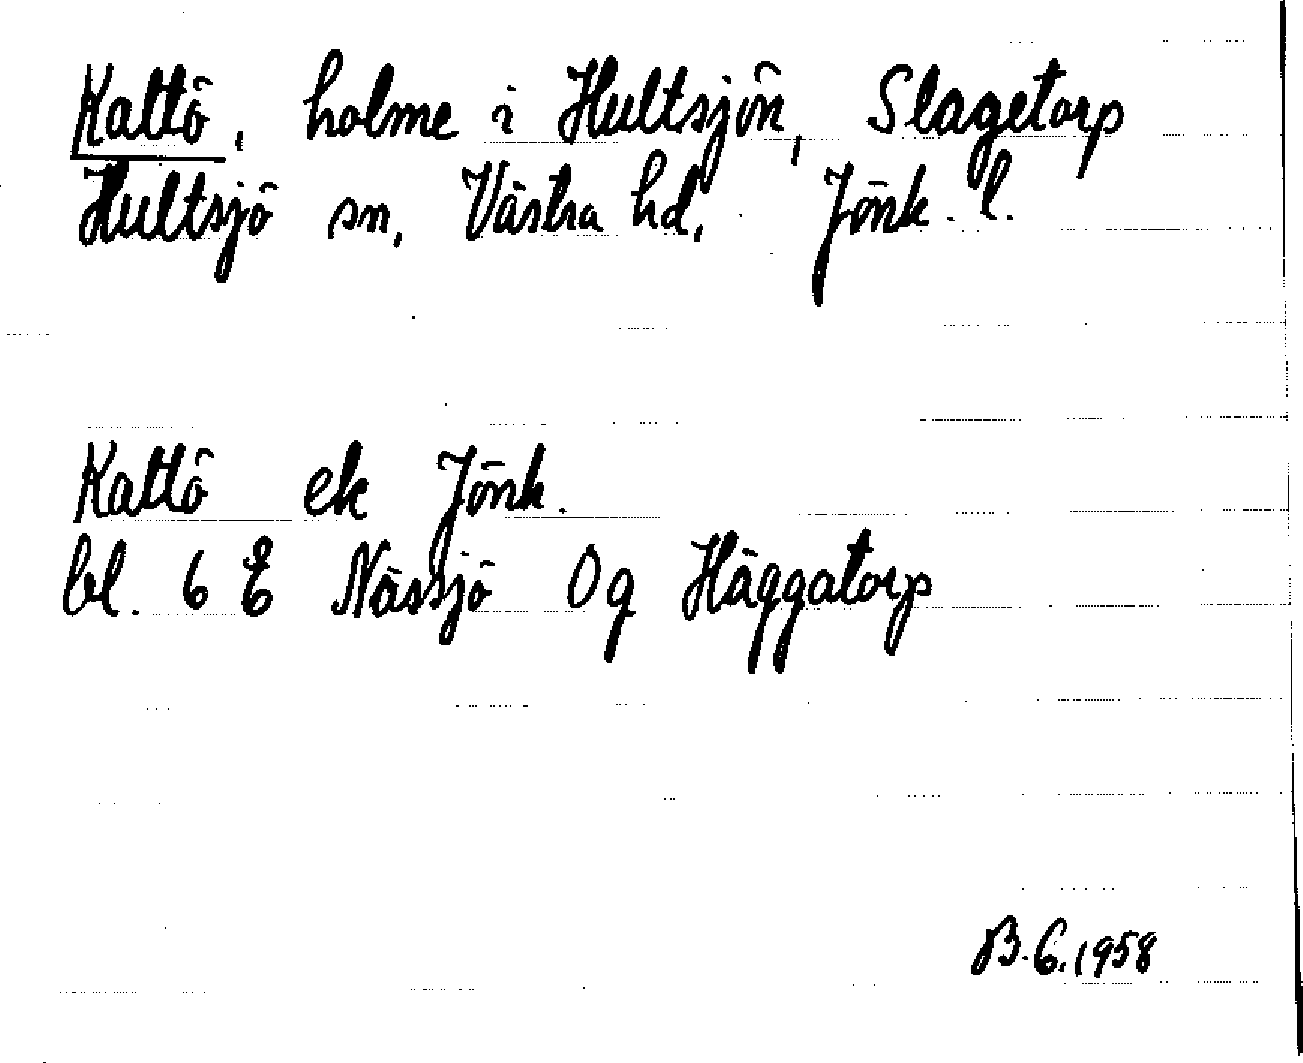 Kattö, holme i Hultsjön, Slagetorp
Hultsjö sn, Västra hd, Jönk. l.
Kattö ek Jönk.
bl. 6 E Nässjö Og Häggatorp
B.G. 1958